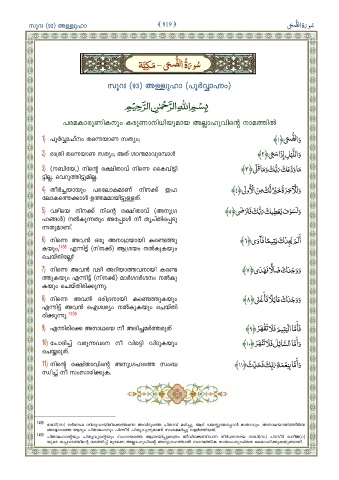 സൂറഃ (93) അള്ളുഹാ ﴾ 819 ﴿ سُورَةُ الضُّحَى
سُورَةُ الضُّحَى – مَكِّيَّة
സൂറഃ (93) അള്ളുഹാ (പൂർവ്വാഹ്നം)
بِسْمِ اللَّهِ الرَّحْمَٰنِ الرَّحِيمِ
പരമകാരുണികനും കരുണാനിധിയുമായ അല്ലാഹുവിന്റെ നാമത്തിൽ
1) പൂർവ്വാഹ്നം തന്നെയാണ സത്യം; وَالضُّحَىٰ ﴿١﴾
2) രാത്രി തന്നെയാണ സത്യം; അത് ശാന്തമാവുമ്പോൾ وَاللَّيْلِ إِذَا سَجَىٰ ﴿٢﴾
3) (നബിയേ,) നിന്റെ രക്ഷിതാവ് നിന്നെ കൈവിട്ടി مَا وَدَّعَكَ رَبُّكَ وَمَا قَلَىٰ ﴿٣﴾
ട്ടില്ല. വെറുത്തിട്ടുമില്ല.
4) തീർച്ചയായും പരലോകമാണ് നിനക്ക് ഇഹ وَلَلْآخِرَةُ خَيْرٌ لَكَ مِنَ الْأُولَىٰ ﴿٤﴾
ലോകത്തെക്കാൾ ഉത്തമമായിട്ടുള്ളത്.
5) വഴിയെ നിനക്ക് നിന്റെ രക്ഷിതാവ് (അനുഗ്ര وَلَسَوْفَ يُعْطِيكَ رَبُّكَ فَتَرْضَىٰ ﴿٥﴾
ഹങ്ങൾ) നൽകുന്നതും അപ്പോൾ നീ തൃപ്തിപ്പെടു
ന്നതുമാണ്.
6) നിന്നെ അവൻ ഒരു അനാഥയായി കണ്ടെത്തു أَلَمْ يَجِدْكَ يَتِيمًا فَآوَىٰ ﴿٦﴾
കയും, എന്നിട്ട് (നിനക്ക്) ആശ്രയം നൽകുകയും
ചെയ്തില്ലേ?
7) നിന്നെ അവൻ വഴി അറിയാത്തവനായി കണ്ടെ وَوَجَدَكَ ضَالًّا فَهَدَىٰ ﴿٧﴾
ത്തുകയും എന്നിട്ട് (നിനക്ക്) മാർഗദർശനം നൽകു
കയും ചെയ്തിരിക്കുന്നു.
8) നിന്നെ അവൻ ദരിദ്രനായി കണ്ടെത്തുകയും وَوَجَدَكَ عَائِلًا فَأَغْنَىٰ ﴿٨﴾
എന്നിട്ട് അവൻ ഐശ്വര്യം നൽകുകയും ചെയ്തി
രിക്കുന്നു.
9) എന്നിരിക്കെ അനാഥയെ നീ അടിച്ചമർത്തരുത് فَأَمَّا الْيَتِيمَ فَلَا تَقْهَرْ ﴿٩﴾
10) ചോദിച്ച് വരുന്നവനെ നീ വിരട്ടി വിടുകയും وَأَمَّا السَّائِلَ فَلَا تَنْهَرْ ﴿١٠﴾
ചെയ്യരുത്.
11) നിന്റെ രക്ഷിതാവിന്റെ അനുഗ്രഹത്തെ സംബ وَأَمَّا بِنِعْمَةِ رَبِّكَ فَحَدِّثْ ﴿١١﴾
ന്ധിച്ച് നീ സംസാരിക്കുക.